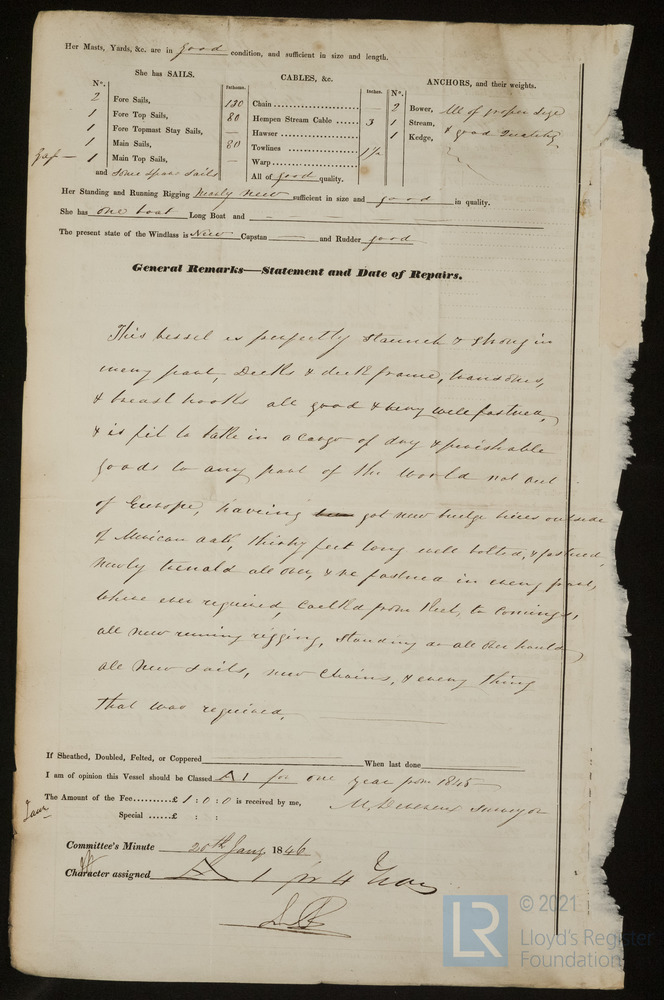 Her Masts, Yards, &c. are in good condition, and sufficient in size and length.
She has SAILS.
CABLES, &c.
ANCHORS, and their weights.
N°.
Fathoms.
Inches.
N°.
2 Fore Sails, 130 Chain 2 Bower, All of proper size
1 Fore Top Sails, 80 Hempen Stream Cable 3 1 Stream, & good Quality
1 Fore Topmast Stay Sails, — Hawser — 1 Kedge,
1 Main Sails, 80 Towlines
gaf — 1 Main Top Sails, — Warp —
and some spare sails All of good quality.
Her Standing and Running Rigging Nearly New sufficient in size and good in quality.
She has one boat Long Boat and —
The present state of the Windlass is New Capstan — and Rudder good
General Remarks—Statement and Date of Repairs.
This vessel is perfectly staunch & strong in
every part, Decks & deck frame, transoms,
& breast hooks all good & very well fastned,
& is fit to take in a cargo of dry & perishable
goods to any part of the world not out
of Europe, haveing got new outside
of oak, thirty feet long well bolted, & fastned,
Newly all over, & re fastned in every part,
where ever required, from Keel, to
all new runing rigging, Standing
all New Sails, new Chains, & every thing
that was required,
If Sheathed, Doubled, Felted, or Coppered When last done
I am of opinion this Vessel should be Classed A 1 for one year from 1845
The Amount of the Fee £ 1 : 0 : 0 is received by me,
Surveyor
Special £ : :
Committee's Minute 20th Jany 1846
Character assigned A 1 for 4 Years
LR
© 2021
Lloyd's Register
Foundation